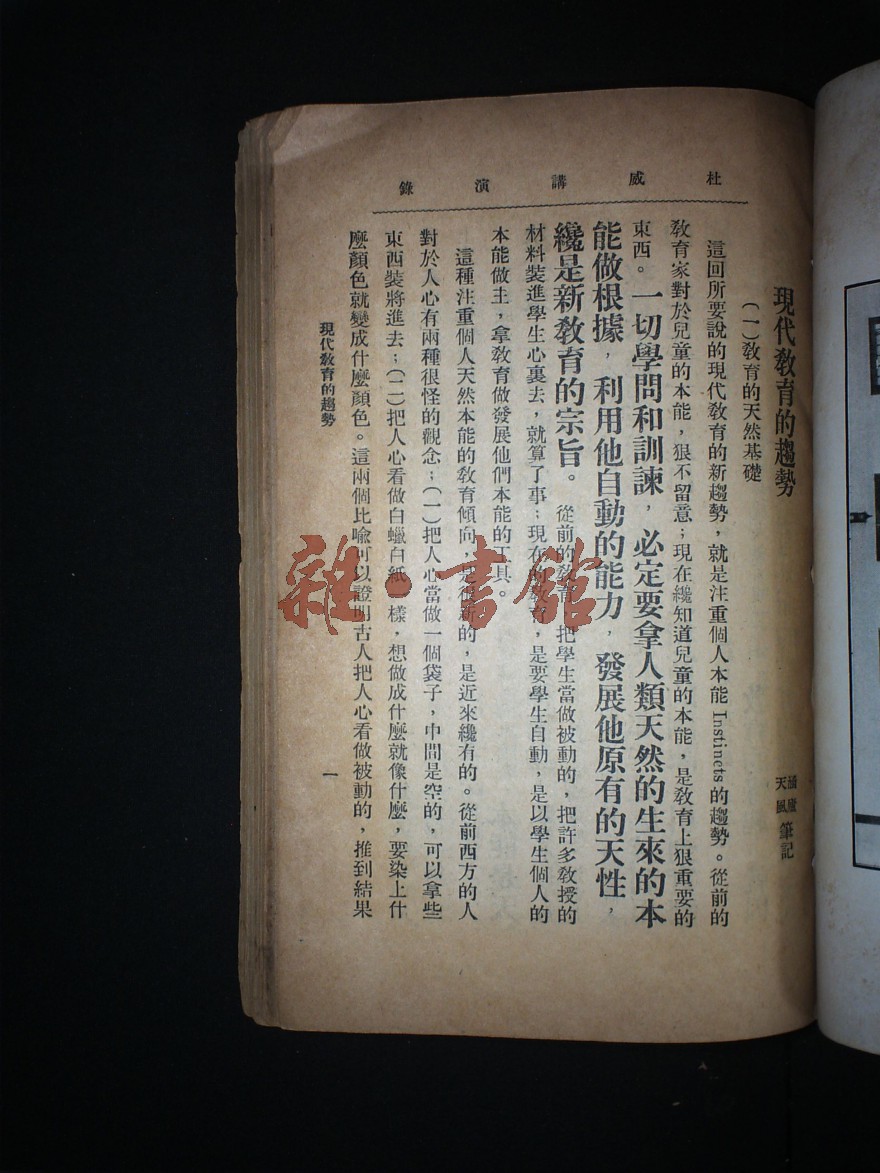 杜威講演錄
現代敎育的趨勢
天風筆記
(一)敎育的天然基礎
這回所要說的現代敎育的新趨勢，就是注重個人本能Instincts的趨勢。從前的
敎育家對於兒童的本能，狠不留意；現在纔知道兒童的本能，是敎育上狠重要的
東西。一切學問和訓諫，必定要拿人類天然的生來的本
能做根據，利用他自動的能力，發展他原有的天性，
纔是新敎育的宗旨。從前的敎育，把學生當做被動的，把許多敎授的
材料裝進學生心裏去，就算了事；現在的敎育，是要學生自動，是以學生個人的
本能做主，拿敎育做發展他們本能的工具。
這種注重個人天然本能的敎育傾向，是很新的，是近來纔有的。從前西方的人
對於人心有兩種很怪的觀念；(一)把人心當做一個袋子，中間是空的，可以拿些
東西裝將進去；(二)把人心看做白蠟白紙一樣，想做成什麼就像什麼，要染上什
麼顏色就變成什麼顏色。這兩個比喩可以證明古人把人心看做被動的，推到結果
現代敎育的趨勢
一
雜·書館